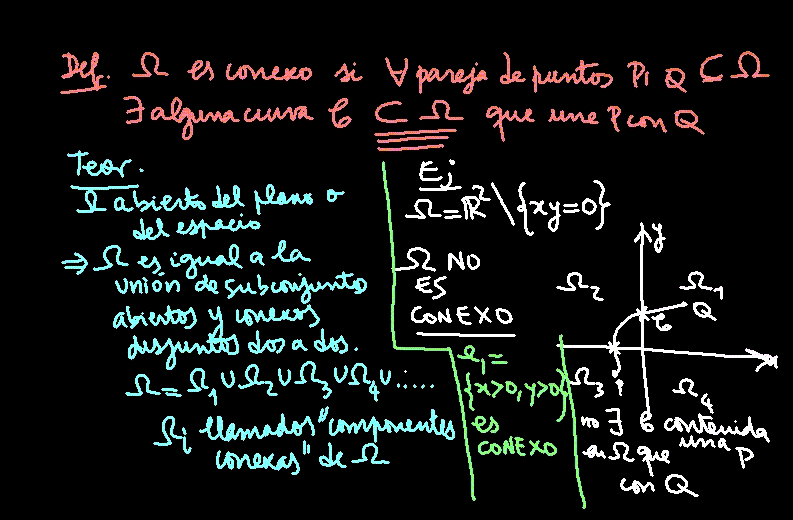 Def. Ω es conexo si ∀ pareja de puntos P, Q ⊂ Ω
∃ alguna curva C ⊂ Ω que une P con Q
Teor.
Ω abierto del plano o
del espacio
⇒ Ω es igual a la
unión de subconjunto
abiertos y conexos
disjuntos dos a dos.
Ω = Ω₁ ∪ Ω₂ ∪ Ω₃ ∪ Ω₄ ∪ .....
Ωi llamados "componentes
conexas" de Ω
Ej
Ω = ℝ² \ {xy=0}
Ω NO
ES
CONEXO
Ω₁ =
{x>0, y>0}
es
CONEXO
y
Ω₂ Ω₁
C Q
x
Ω₃ Ω₄
P
no ∃ C contenida
en Ω que una P
con Q